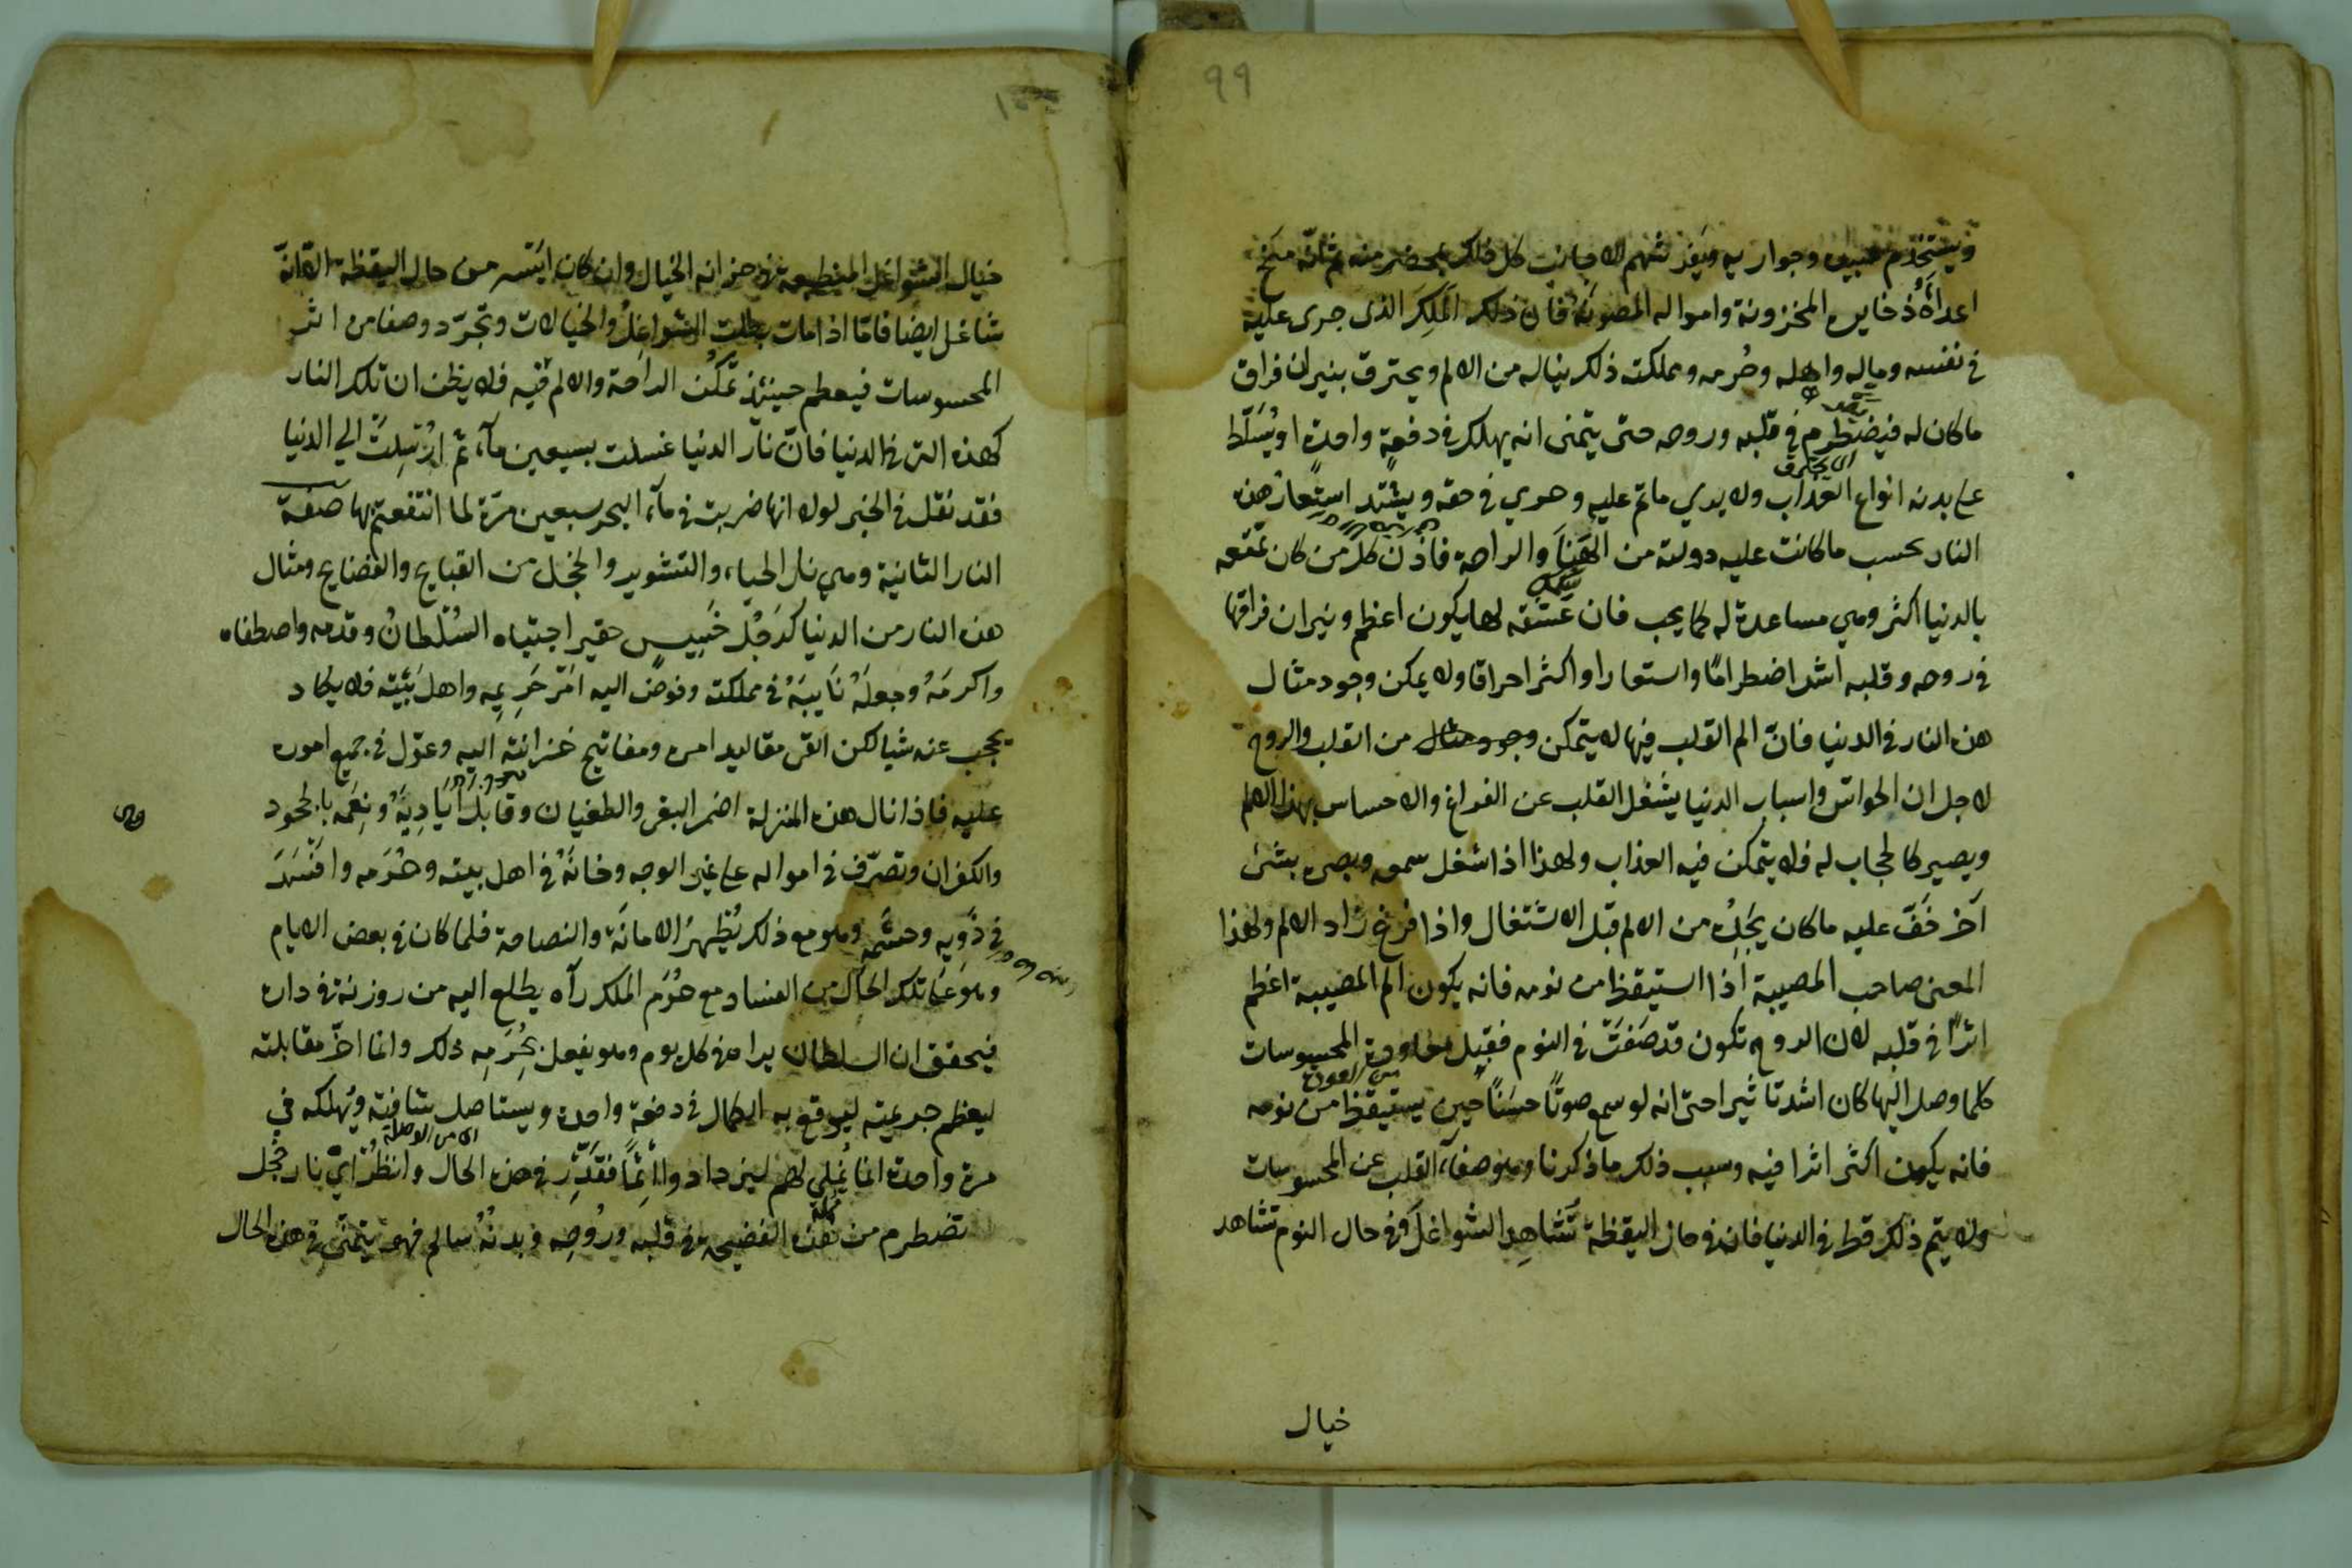 ٩٩
ويستخدم عبيده وجواريه ويفرشهم الاجانب كل ذلك بمحضر منه ثم انه منح
اعداه ذخايره المخزونة وامواله المصونة فان ذلك الملك الذى جرى عليه
فى نفسه وماله واهله وحرمه ومملكته ذلك يناله من الالم ويحترق بنيران فراق
ما كان له فيضطرم فى قلبه وروحه حتى يتمنى انه يهلك فى دفعة واحدة او يسلط
على بدنه انواع العذاب ولا يدي ماتم عليه وجرى فى حقه ويشتد استعار هذه
النار بحسب ما كانت عليه دولته من الهنا والراحة فاذن كل من كان تمتعه
بالدنيا اكثر وهي مساعدة له كما يحب فان عشقه لها يكون اعظم ونيران فراقها
فى روحه وقلبه اشد اضطراما واستعارا واكثر احراقا ولا يمكن وجود مثال
هذه النار فى الدنيا فان الم القلب فيها لا يتمكن من القلب والروح
لاجل ان الحواس واسباب الدنيا يشغل القلب عن الفراغ والاحساس بهذا الالم
ويصير كالحجاب له فلا يتمكن فيه العذاب ولهذا اذا شغل سمعه وبصره بشئ
آخر خف عليه ما كان يجده من الالم قبل الاشتغال واذا فرغ زاد الالم ولهذا
المعنى صاحب المصيبة اذا استيقظ من نومه فانه يكون الم المصيبة اعظم
اثرا فى قلبه لان الروح تكون قد صفت فى النوم فقبل معاودة المحسوسات
كلما وصل اليها كان اشد تاثيرا حتى انه لو سمع صوتا حسنا حين يستيقظ من نومه
فانه يكون اكثر اثرا فيه وسبب ذلك ما ذكرنا وهو صفآء القلب عن المحسوسات
ولا يتم ذلك قط فى الدنيا فانه فى حال اليقظة تشاهد الشواغل وفى حال النوم تشاهد
خيال
١٠٠
خيال الشواغل المنطبعة فى خزانه الخيال وان كان ايسر من حال اليقظة الا انه
شاغل ايضا فاما اذا مات بطلت الشواغل والخيالات وتجرد وصفا من اثر
المحسوسات فيعظم حينئذ تمكن الراحة والالم فيه فلا يظن ان تلك النار
كهذه التى فى الدنيا فان نار الدنيا غسلت بسبعين مآء ثم ارسلت الي الدنيا
فقد نقل فى الخبر لولا انها ضربت فى مآء البحر سبعين مرة لما انتفعتم بها صفة
النار الثانية وهي نار الحياء والتشوير والخجل من القبايح والفضايح ومثال
هذه النار من الدنيا كرجل خسيس حقير اجتباه السلطان وقدمه واصطفاه
واكرمه وجعله نايبه فى مملكته وفوض اليه امر حريمه واهل بيته فلا يكاد
يحجب عنه شيا لكن القى مقاليد امره ومفاتيح خزانته اليه وعول فى جميع اموره
عليه فاذا نال هذه المنزلة اضمر البغى والطغيان وقابل اياديه ونعمه بالجحود
والكفران وتصرف فى امواله على غير الوجه وخانه فى اهل بيته وحرمه وافسد
فى ذويه وحشمه وهو مع ذلك يظهر الامانة والنصاحة فلما كان فى بعض الايام
وهو على تلك الحال من الفساد مع حرم الملك رآه يطلع اليه من روزنة فى داره
فيحقق ان السلطان يراه فى كل يوم وهو يفعل بحرمه ذلك وانما اخر مقابلته
ليعظم جريمته ليوقع به النكال فى دفعة واحدة ويستاصل شافته ويهلكه في
مرة واحدة انما يملي لهم ليزدادوا اثما فقدر فى هذه الحال وانظر اي نار خجل
تضطرم من هذه الفضيحة فى قلبه وروحه وبدنه سالم فهو يتمنى فى هذه الحال